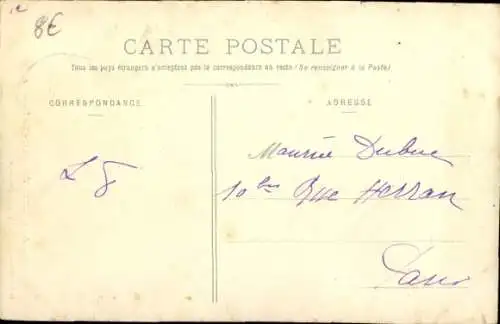 8€
CARTE POSTALE
Tous les pays étrangers n'acceptent pas la correspondance au recto (Se renseigner à la Poste)
CORRESPONDANCE
ADRESSE
Maurice Dubuc
10 bis Rue Herran
Paris